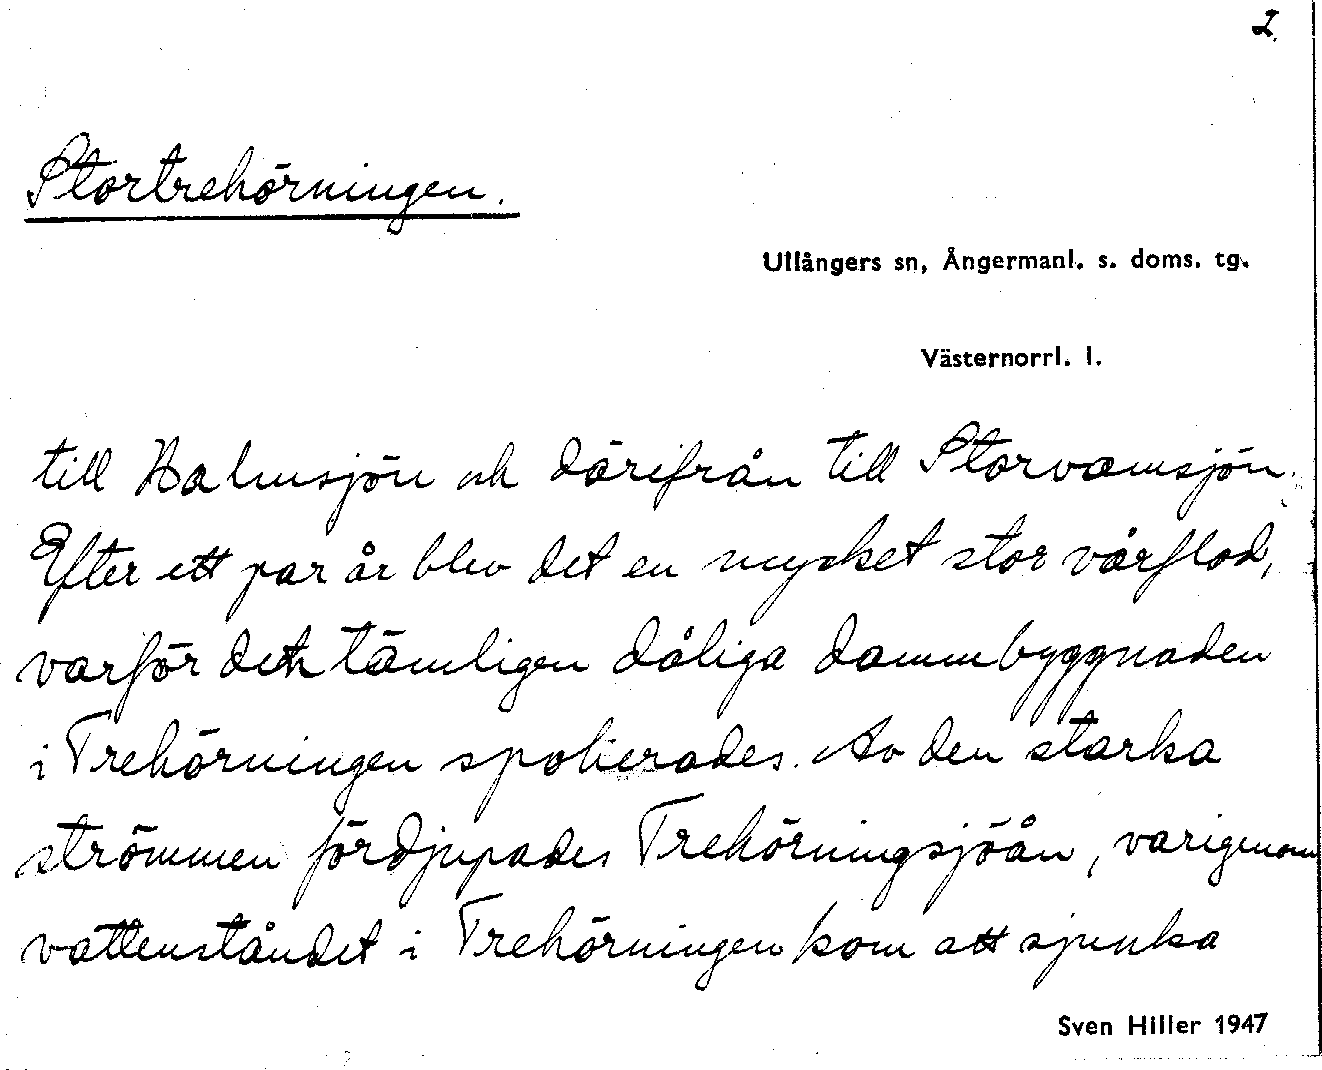 2.
Stortrehörningen.
Ullångers sn, Ångermanl. s. doms. tg.
Västernorrl. l.
till Halmsjön och därifrån till Storvamsjön.
Efter ett par år blev det en mycket stor vårflod,
varför den tämligen dåliga dammbyggnaden
i Trehörningen spolierades. Av den starka
strömmen fördjupades Trehörningsjöån, varigenom
vattenståndet i Trehörningen kom att sjunka
Sven Hiller 1947